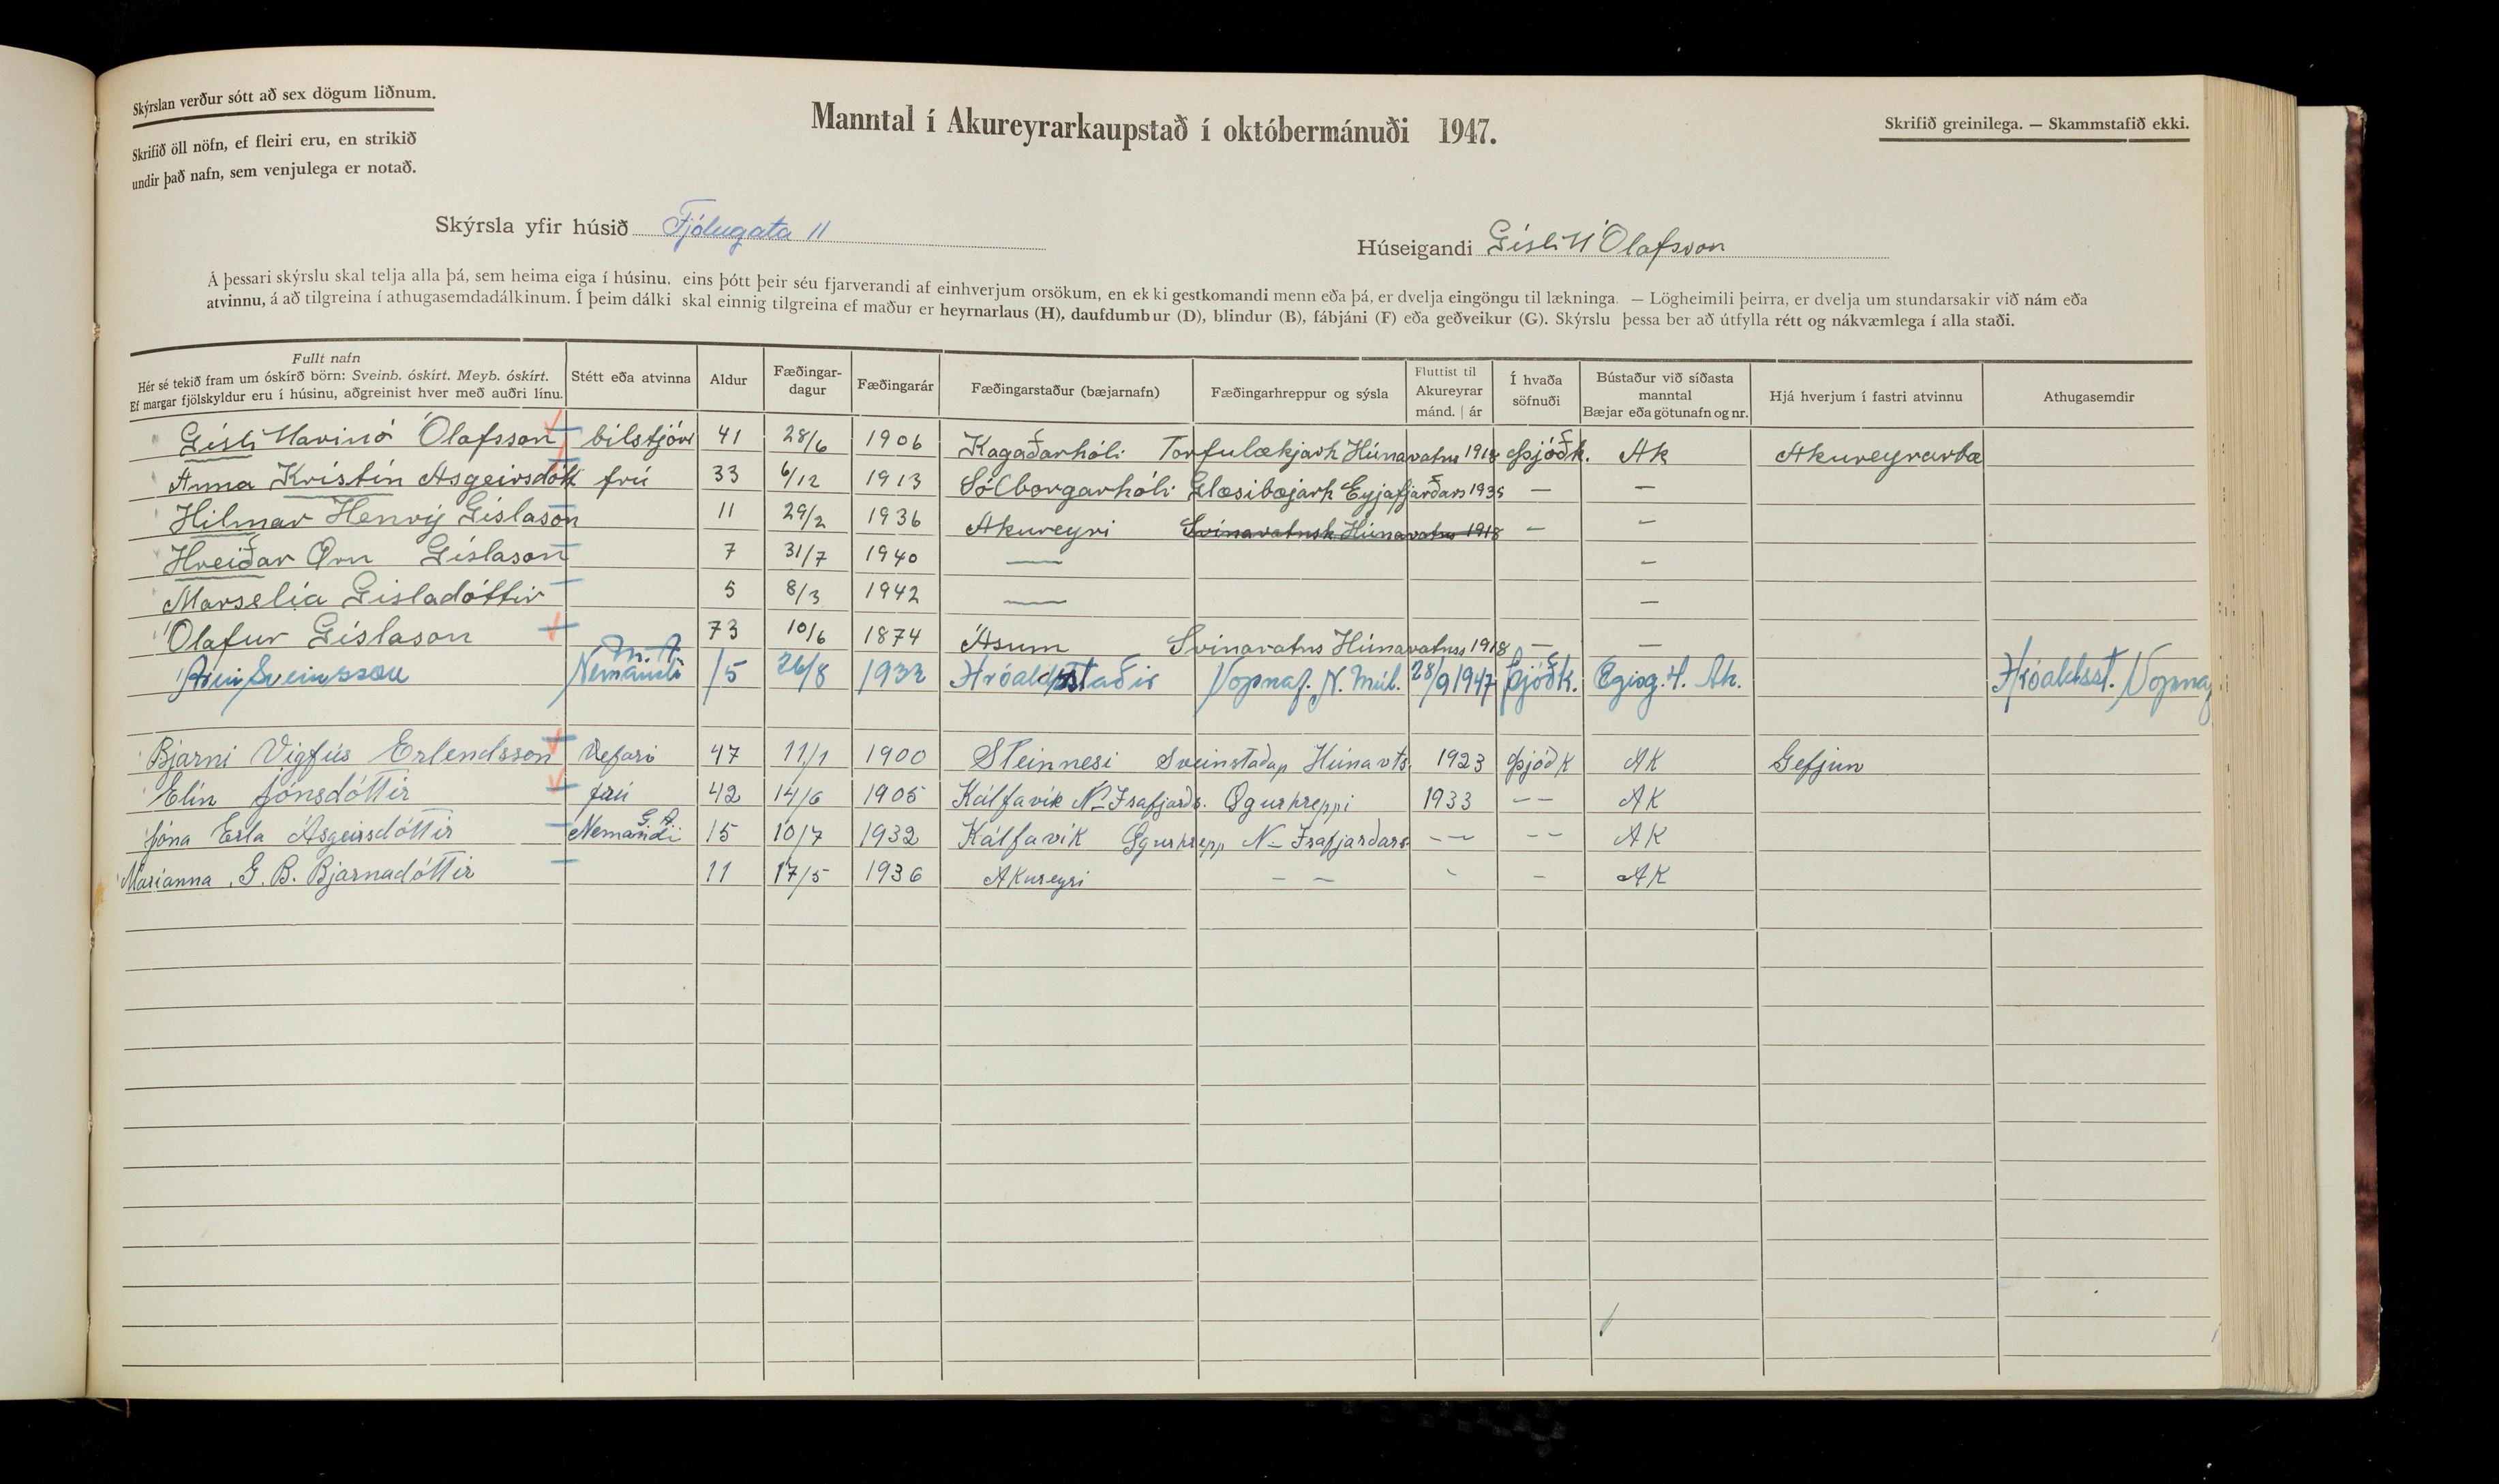 Skýrslan verður sótt að sex dögum liðnum.
Skrifið öll nöfn, ef fleiri eru, en strikið
undir það nafn, sem venjulega er notað.
Manntal í Akureyrarkaupstað í októbermánuði 1947.
Skrifið greinilega. — Skammstafið ekki.
Skýrsla yfir húsið Fjólugata 11
Húseigandi Gísli M Ólafsson
Á þessari skýrslu skal telja alla þá, sem heima eiga í húsinu, eins þótt þeir séu fjarverandi af einhverjum orsökum, en ekki gestkomandi menn eða þá, er dvelja eingöngu til lækninga. — Lögheimili þeirra, er dvelja um stundarsakir við nám eða
atvinnu, á að tilgreina í athugasemdadálkinum. Í þeim dálki skal einnig tilgreina ef maður er heyrnarlaus (H), daufdumbur (D), blindur (B), fábjáni (F) eða geðveikur (G). Skýrslu þessa ber að útfylla rétt og nákvæmlega í alla staði.
Fullt nafn
Hér sé tekið fram um óskírð börn: Sveinb. óskírt. Meyb. óskírt.
Ef margar fjölskyldur eru í húsinu, aðgreinist hver með auðri línu.
Stétt eða atvinna
Aldur
Fæðingar-
dagur
Fæðingarár
Fæðingarstaður (bæjarnafn)
Fæðingarhreppur og sýsla
Fluttist til
Akureyrar
mánd. | ár
Í hvaða
söfnuði
Bústaður við síðasta
manntal
Bæjar eða götunafn og nr.
Hjá hverjum í fastri atvinnu
Athugasemdir
Gísli Marinó Ólafsson bílstjóri 41 28/6 1906 Kagaðarhóli Torfulækjarh Húnavatns 1918 Þjóðk. Ak Akureyrarbæ
Anna Kristín Asgeirsdótt frú 33 6/12 1913 Sólborgarhóli Glæsibæjarh Eyjafjarðars 1935 — —
Hilmar Henrý Gíslason 11 29/2 1936 Akureyri Svínavatnsh Húnavatns 1918 — —
Hreiðar Örn Gíslason 7 31/7 1940 — —
Marselía Gísladóttir 5 8/3 1942 — —
Ólafur Gíslason 73 10/6 1874 Ásum Svínavatns Húnavatnss 1918 — —
M.A.
Árni Sveinsson Nemandi 15 26/8 1932 Hróaldsstaðir Vopnaf. N. Múl. 28/9 1947 Þjóðk. Ak. Hróaldsst. Vopnaf
Bjarni Vigfús Erlendsson Vefari 47 11/1 1900 Steinnesi Sveinstaðap Húnavts. 1923 Þjóðk AK Gefjun
Elín Jónsdóttir frú 42 14/6 1905 Kálfavík N-Ísafjarðs. Ögurhreppi 1933 — — AK
G.A.
Jóna Erla Ásgeirsdóttir Nemandi 15 10/7 1932 Kálfavík Ögurhrepp N-Ísafjarðars — — — — AK
Maríanna G. B. Bjarnadóttir 11 17/5 1936 Akureyri — — - — AK